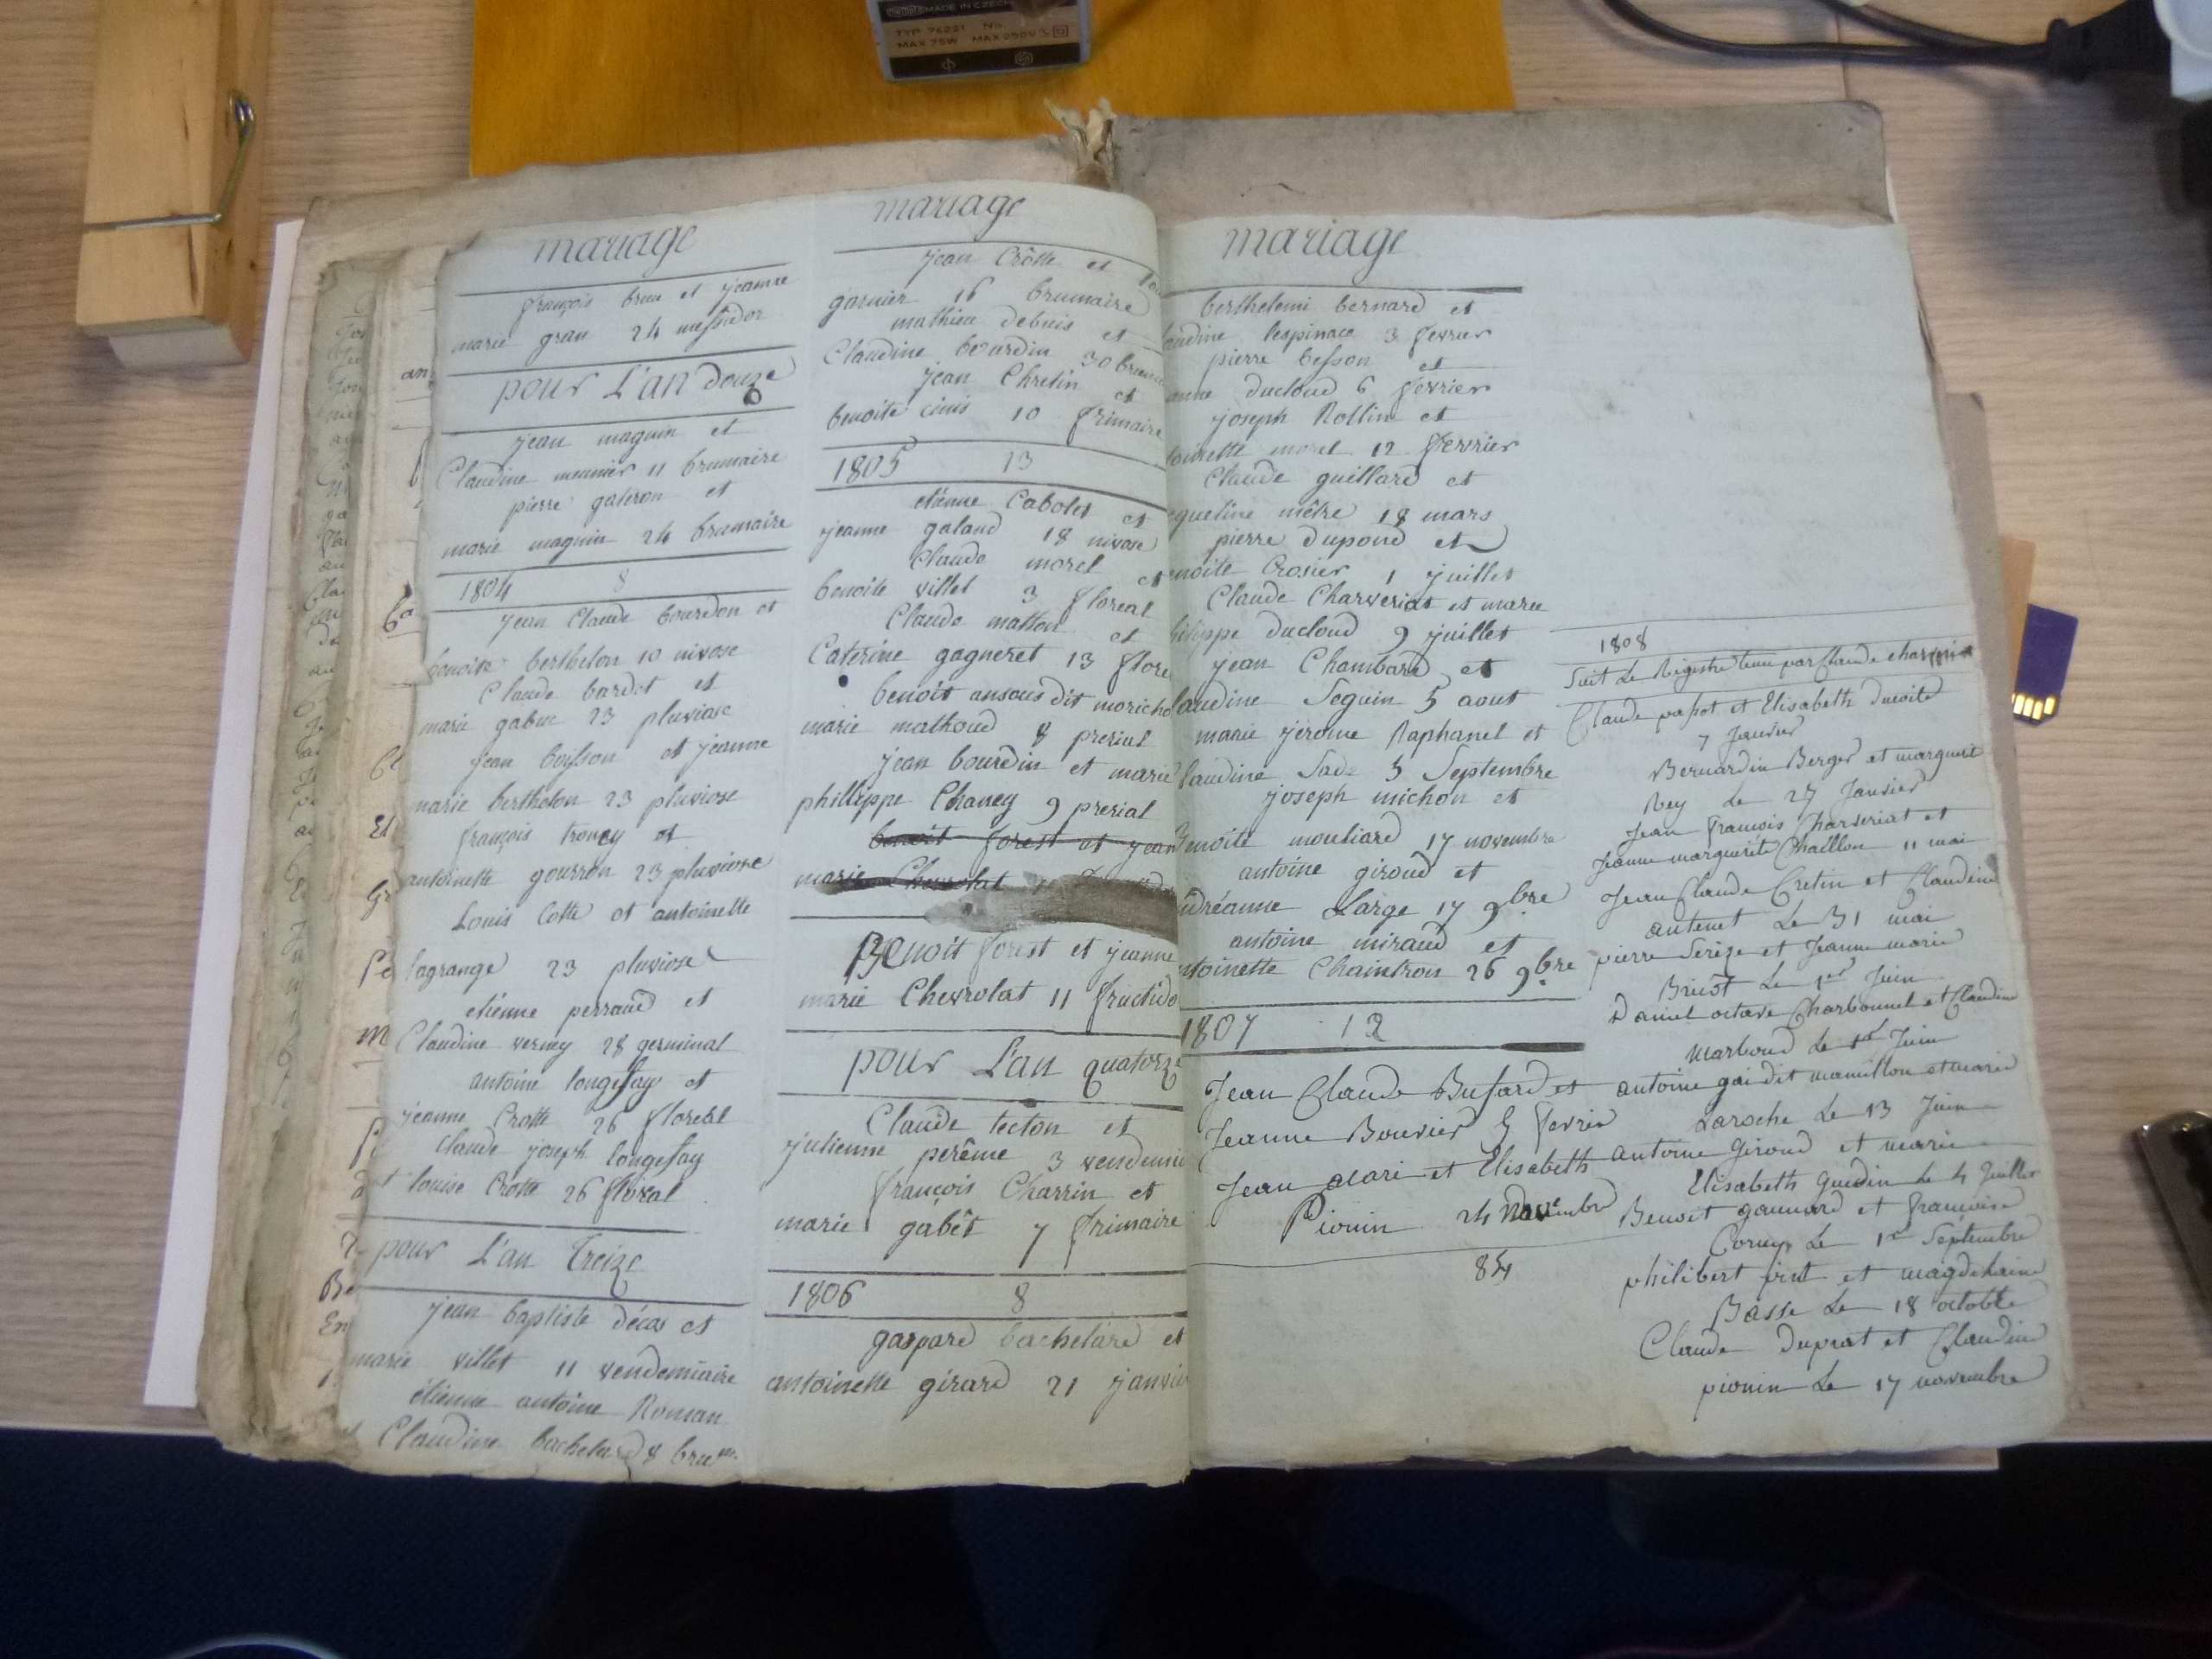 MADE IN CZECH
TYP 76221 No.
MAX 75W MAX 250V
mariage
françois brun et jeanne
marie gran 24 messidor
pour L'an douze
jean maguin et
Claudine meunier 11 brumaire
pierre galeron et
marie maguin 24 brumaire
1804 8
jean Claude bourdon et
benoite berthelon 10 nivose
Claude bardet et
marie gabut 23 pluviose
jean boisson et jeanne
marie berthelon 23 pluviose
françois troncy et
antoinette gourron 23 pluviose
Louis Cotte et antoinette
lagrange 23 pluviose
etienne perraud et
Claudine verney 28 germinal
antoine longefay et
jeanne Crotte 26 floreal
Claude joseph longefay
et louise Crotte 26 floreal
pour L'an Treize
jean baptiste décas et
marie villet 11 vendemiaire
étienne antoine Roman
Claudine bachelard 8 brum.
mariage
jean Crôtte et
garnier 16 brumaire
mathieu debuis et
Claudine bourdin 30 brumai
jean Chretin et
benoite cinis 10 frimaire
1805 13
etienne Cabolet et
jeanne galand 18 nivose
Claude morel et
benoite villet 3 floreal
Claude mathon et
Caterine gagneret 13 flore
benoit ansous dit moricho
marie mathoud 8 prerial
jean bourdin et marie
phillippe Chaney 9 prerial
benoit forest et jean
marie Chevrolat
Benoit forest et jeanne
marie Chevrolat 11 fructido
pour L'an quatorze
Claude tecton et
julienne perême 3 vendemi
françois Charrin et
marie gabêt 7 frimaire
1806 8
gaspard bachelard et
antoinette girard 21 janvi
mariage
berthelemi bernard et
audine lespinace 3 fevrier
pierre besson et
anne ducloud 6 fevrier
joseph Rollin et
toinette morel 12 fevrier
Claude guillard et
queline mêtre 18 mars
pierre dupond et
enoite Crosier 1 juillet
Claude Charveriat et marie
hilippe ducloud 9 juillet
jean Chambard et
laudine Seguin 5 aout
marie jérome Raphanel et
laudine Sade 5 Septembre
joseph michon et
Benoite mouliard 17 novembre
antoine giroud et
udréanne Large 17 9bre
antoine miraud et
ntoinette Chaintron 26 9bre
1807 12
Jean Claude Busard et
Jeanne Bouvier 5 fevrie
Jean Mari et Elisabeth
Pionin 24 Novembre
84
1808
Suit Le Registre tenu par Claude
Claude papot et Elisabeth
7 Janvier
Bernardin Berger et marguerit
Rey Le 27 Janvier
Jean françois Charveriat et
Jeanne marguerite Chaillon 11 mai
Jean Claude Cretin et Claudine
antenet Le 31 mai
pierre Serêze et Jeanne marie
Briest Le 1er Juin
Daniel octave Charbonnel et Claudine
Marboud Le 1er Juin
antoine gai dit mamillon et marie
Laroche Le 13 Juin
antoine Giroud et marie
Elisabeth Guedin Le 4 Juillet
Benoit gonnard et françoise
Corny Le 1er Septembre
philibert et magdelaine
Basse Le 18 octobre
Claude Duprat et Claudine
pionin Le 17 novembre